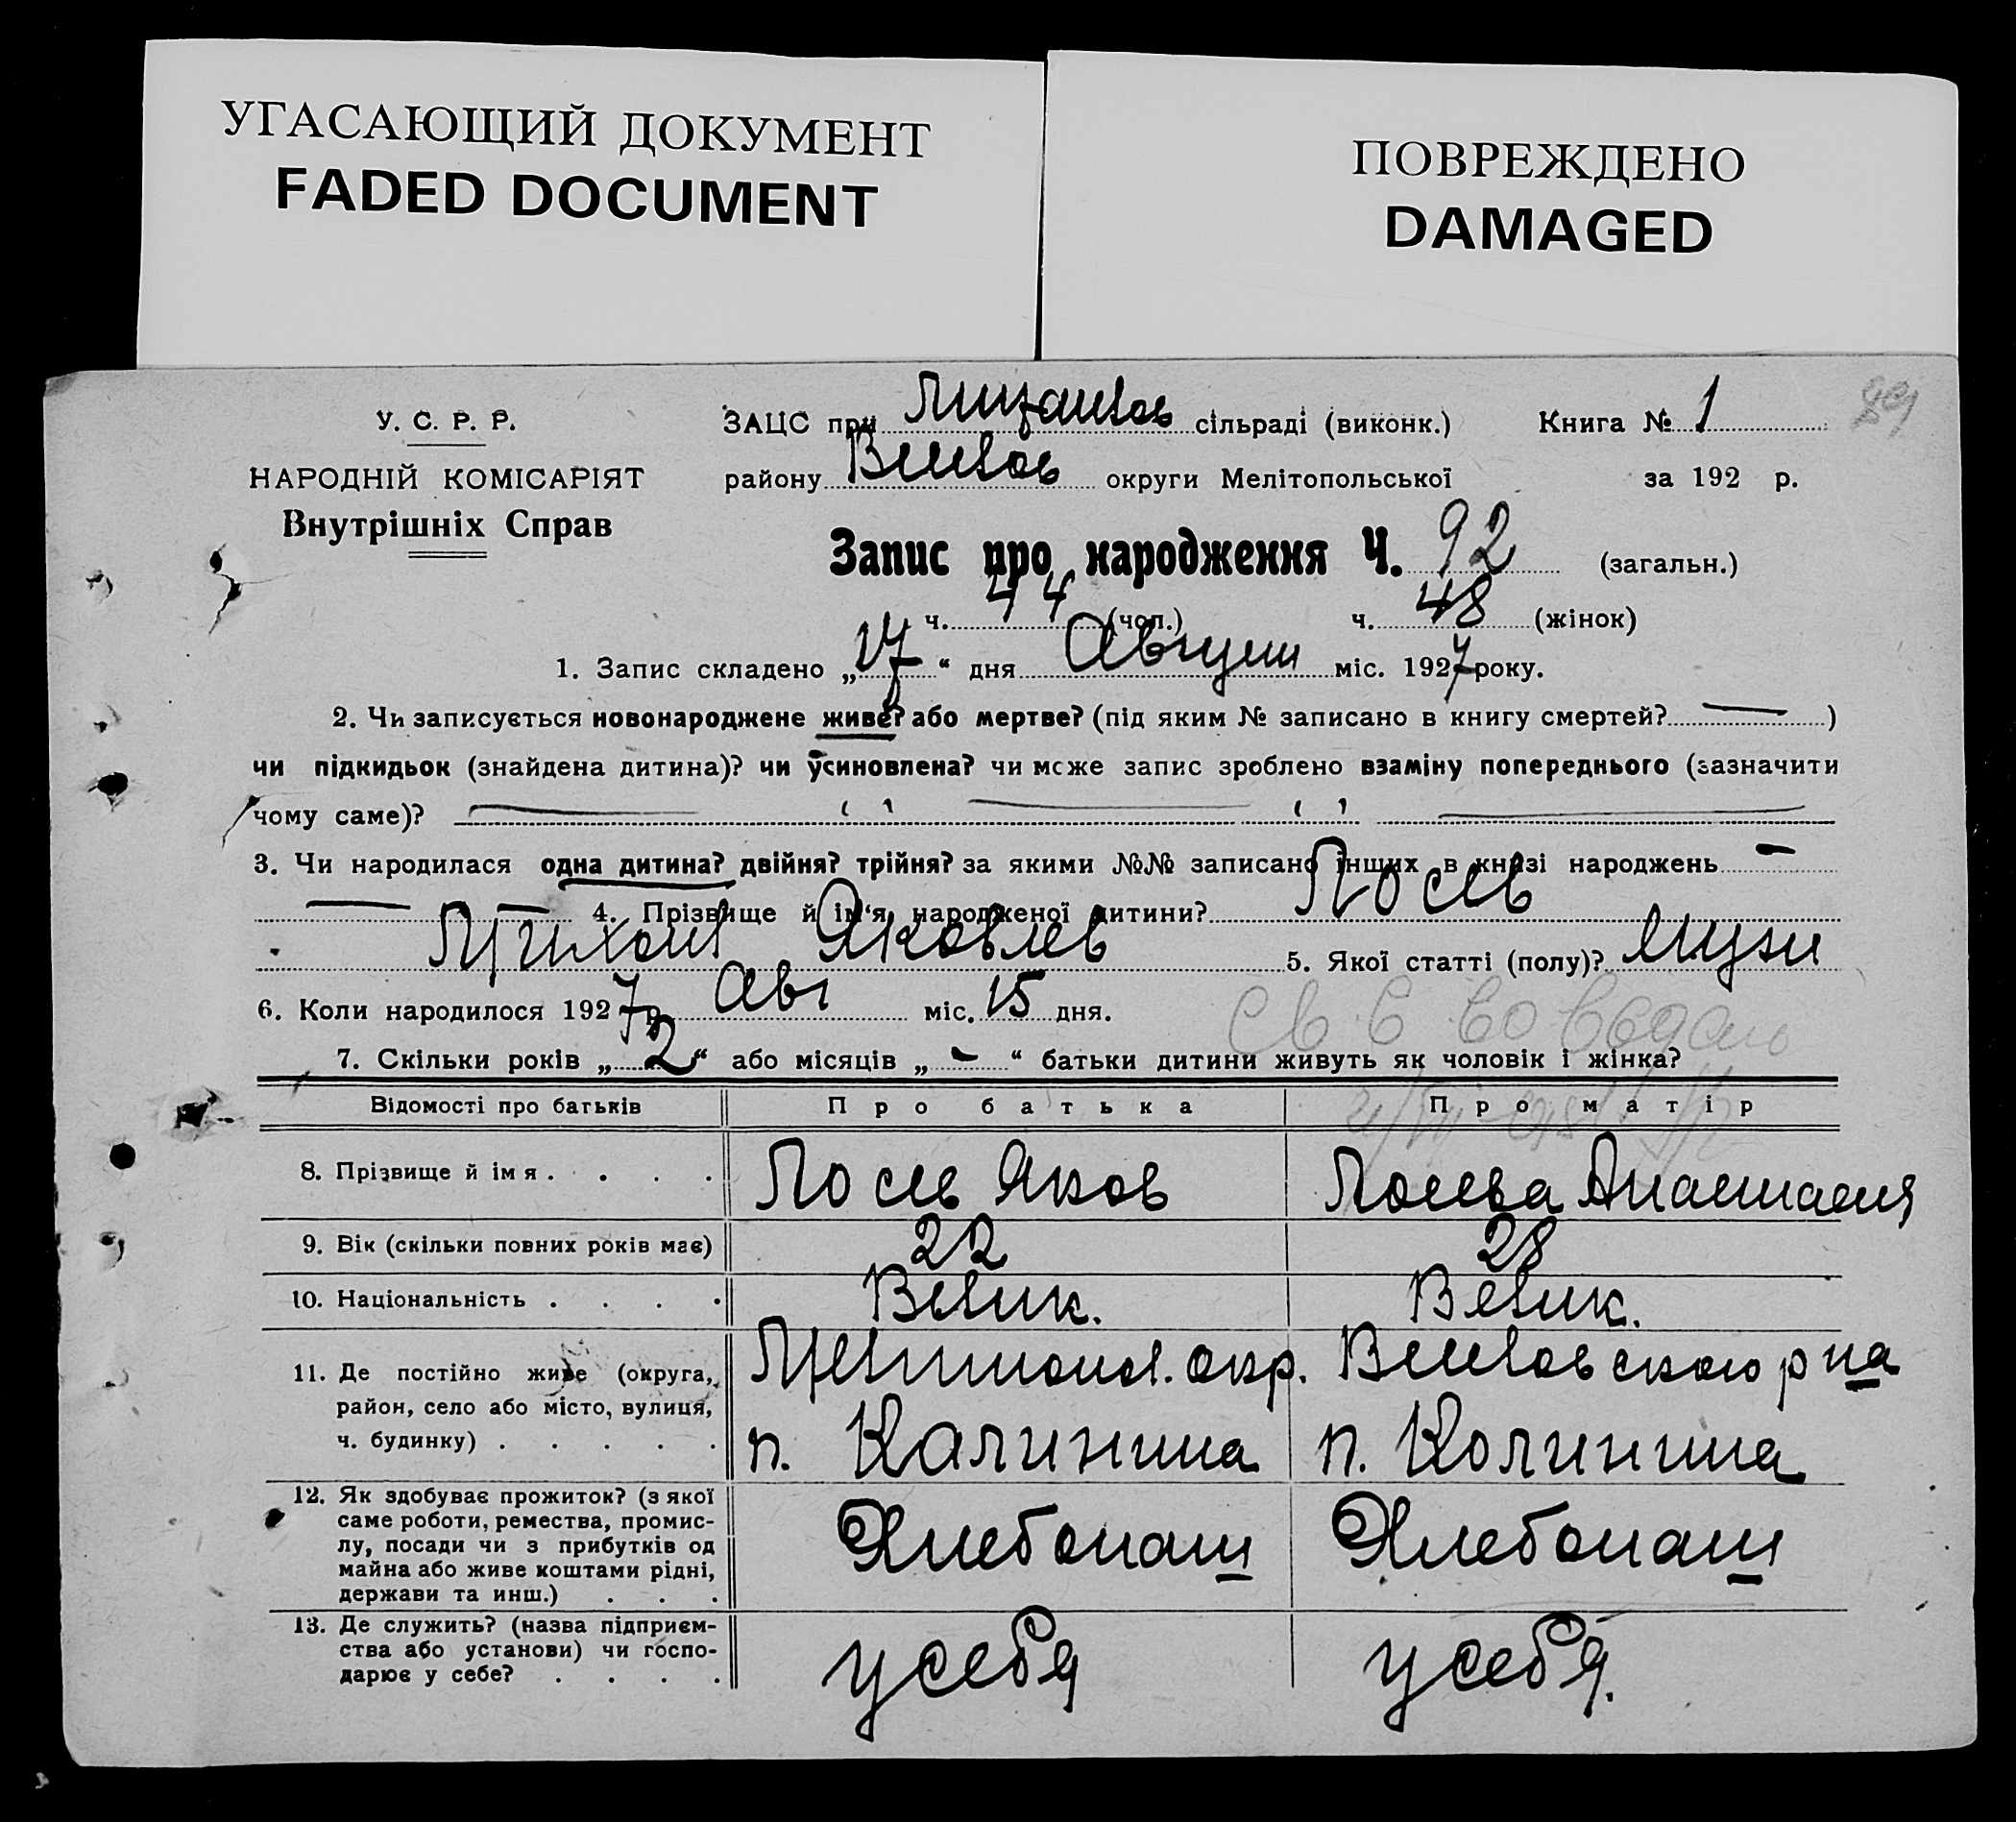 УГАСАЮЩИЙ ДОКУМЕНТ
FADED DOCUMENT
ПОВРЕЖДЕНО
DAMAGED
У. С. Р. Р.
НАРОДНІЙ КОМІСАРІЯТ
Внутрішніх Справ
ЗАЦС при сільраді (виконк.) Книга № 1
району Веселов округи Мелітопольської за 192 р.
Запис про народження Ч. 92 (загальн.)
ч. 44 (чол.) ч. 48 (жінок)
1. Запис складено „17“ дня Август міс. 1927 року.
2. Чи записується новонароджене живе? або мертве? (під яким № записано в книгу смертей? — )
чи підкидьок (знайдена дитина)? чи усиновлена? чи може запис зроблено взаміну попереднього (зазначити
чому саме)? —
3. Чи народилася одна дитина? двійня? трійня? за якими №№ записано інших в книзі народжень —
— 4. Прізвище й ім‘я народженої дитини? Лосев
Михаил Яковлев 5. Якої статті (полу)? мужи
6. Коли народилося 1927 р. Авг міс. 15 дня.
7. Скільки років „2“ або місяців „-“ батьки дитини живуть як чоловік і жінка?
Відомості про батьків Про батька Про матір
8. Прізвище й ім я . . . . Лосев Яков Лосева Анастасия
9. Вік (скільки повних років має) 22 28
10. Національність . . . . Велик. Велик.
11. Де постійно живе (округа, район, село або місто, вулиця, ч. будинку) . . . . . Мелитопол. окр. Веселовского р на
п. Калинина п. Колинина
12. Як здобуває прожиток? (з якої
саме роботи, ремества, промис-
лу, посади чи з прибутків од
майна або живе коштами рідні,
держави та инш.) . . . Хлебопаш Хлебопаш
13. Де служить? (назва підприєм-
ства або установи) чи госпо-
дарює у себе? . . . . у себя у себя.